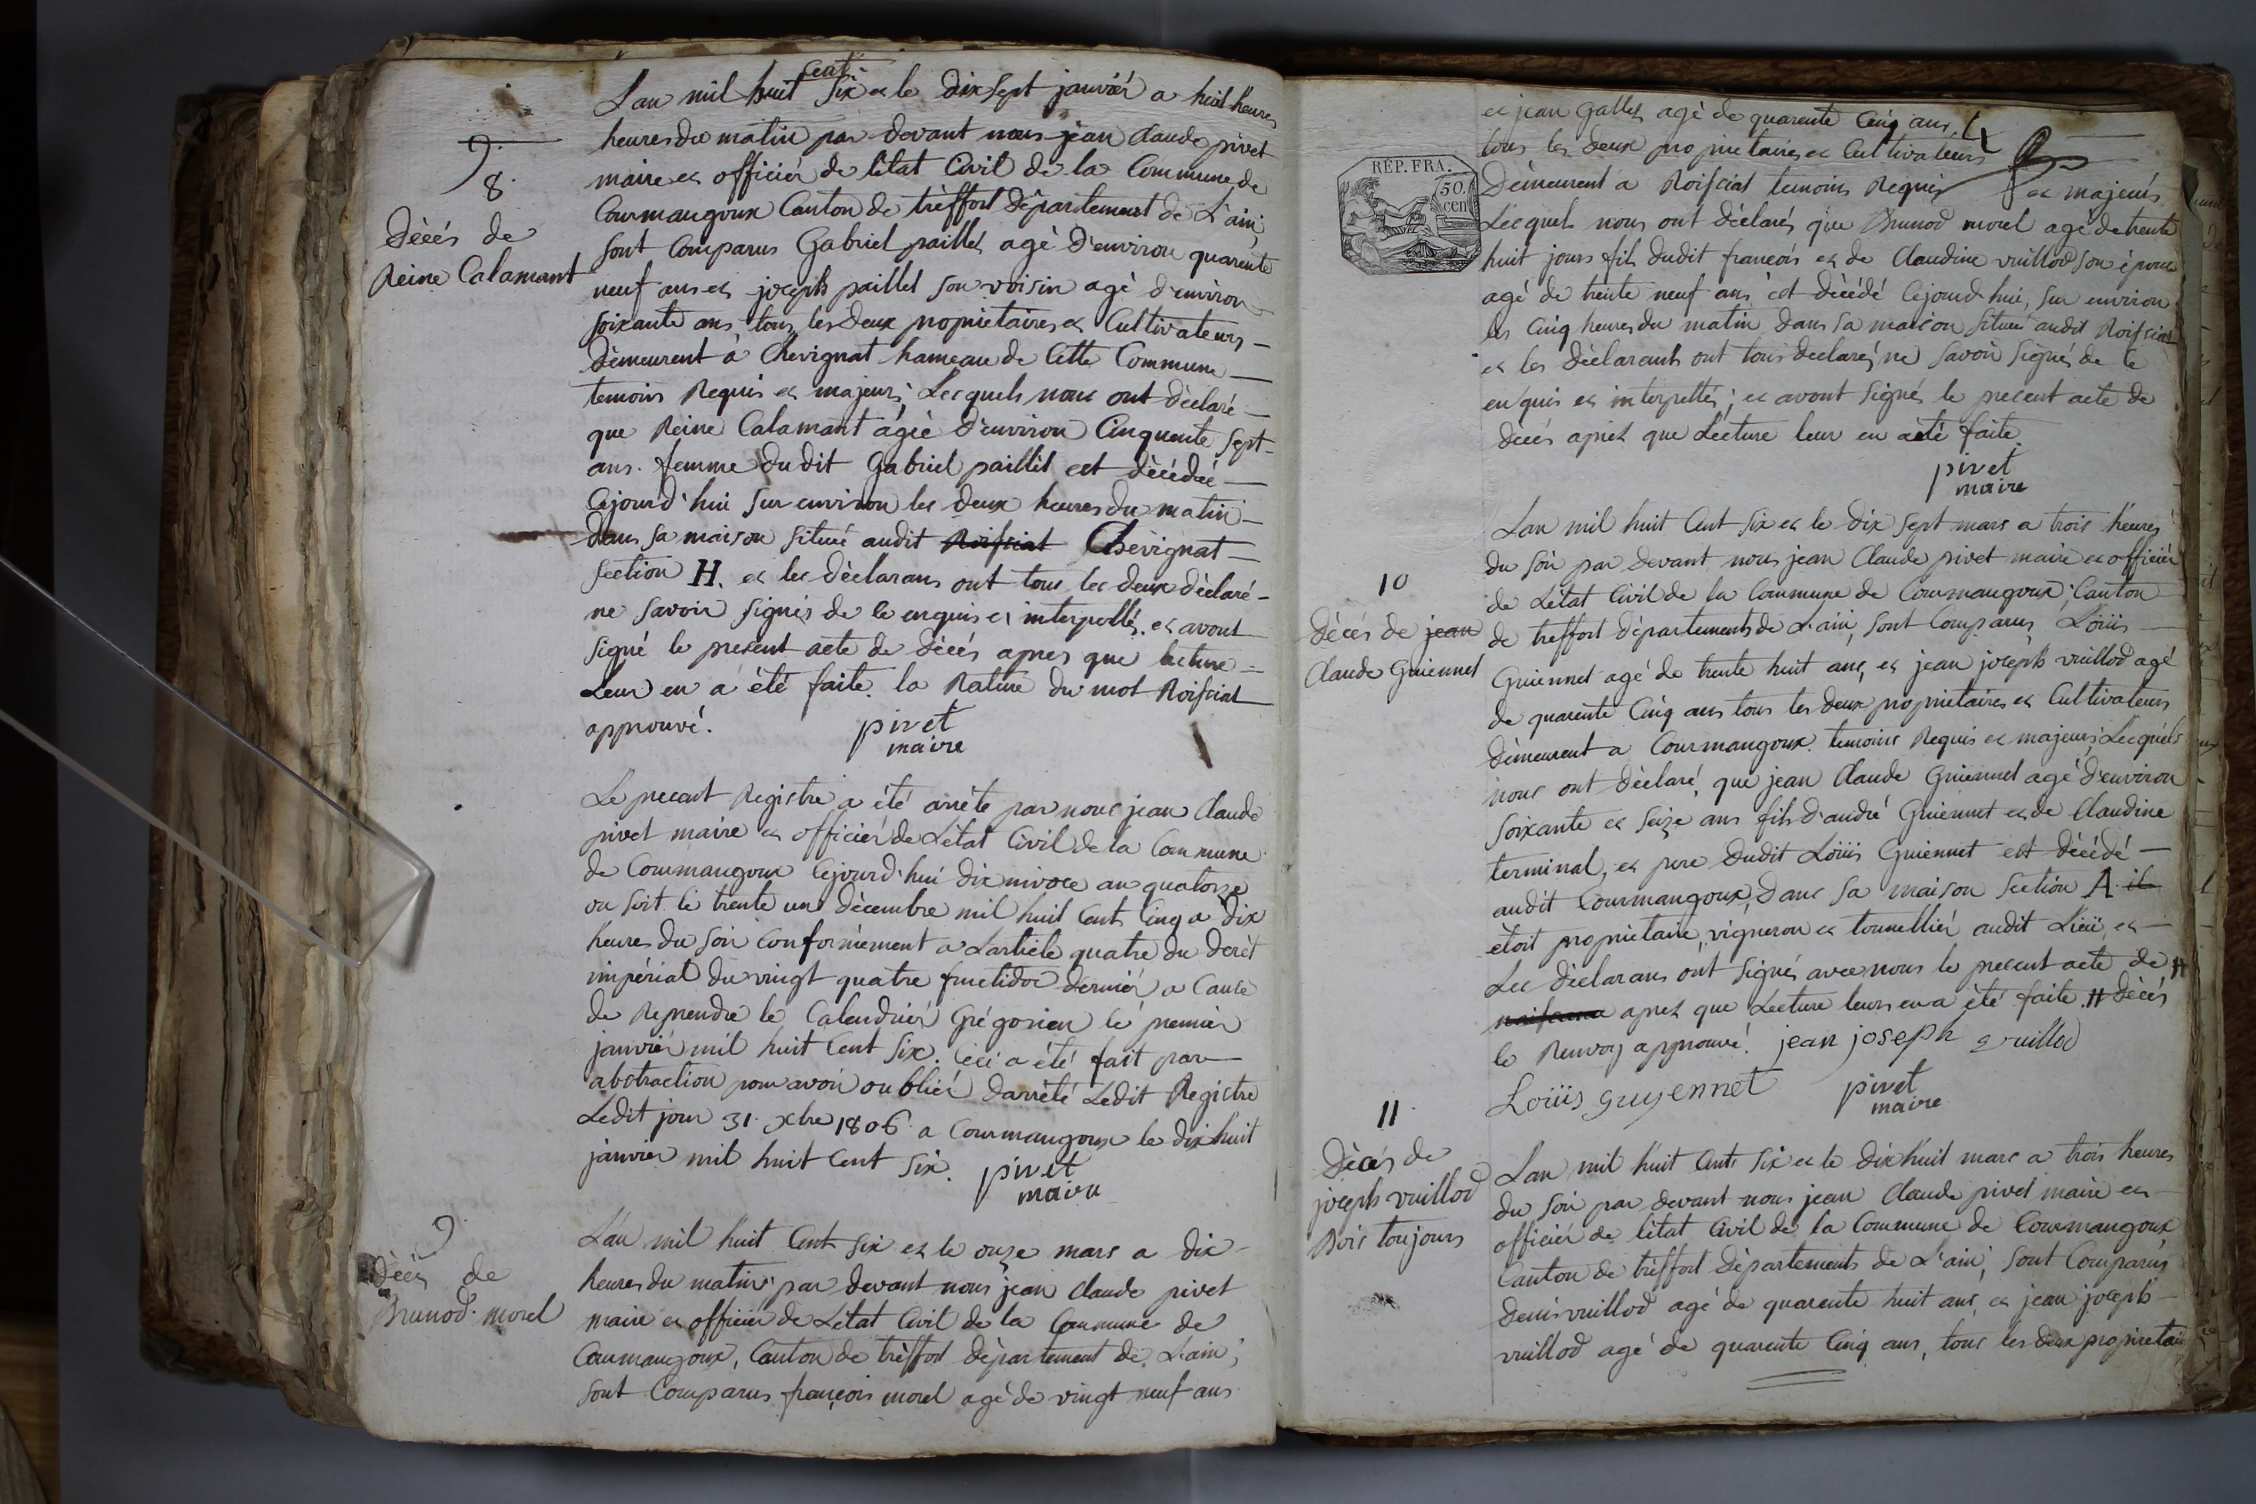 9.
8.
Décès de
Reine Calamant
Lan mil huit cent six et le dix sept janvier a huit heures
heures du matin par devant nous jean Claude pivet
maire et officier de létat Civil de la Commune de
Courmangoux Canton de tréffort département de L'ain;
sont Comparus Gabriel paillet agé d'environ quarente
neuf ans et joseph paillet son voisin agé d'environ
soixante ans, tous les deux proprietaires et Cultivateurs
démeurent à Chevignat hameau de Cette Commune
temoins Requis et majeurs; Lesquels nous ont déclaré
que Reine Calamant agée d'environ Cinquente sept
ans. femme dudit Gabriel paillet est décédée
Cejourd'hui sur environ les deux heures du matin
dans sa maison située audit Roissiat Chevignat
section H. et les déclarans ont tous les deux déclaré
ne savoir signés de ce enquis et interpellés. et avont
signé le present acte de décés apres que lecture
Leur en a été faite. la Rature du mot Roissiat
approuvé.
pivet
maire
Le present Registre a été arrété par nous jean Claude
pivet maire et officier de Létat Civil de la Commune
de Courmangoux Cejourd'hui dix nivose an quatorze
ou soit le trente un décembre mil huit Cent Cinq a dix
heures du soir Conformément a Larticle quatre du decrét
impérial du vingt quatre fructidor dernier, a Cause
de Reprendre le Calendrier Grégorien le premier
janvier mil huit Cent Six. Ceci a été fait par
abstraction pour avoir oublier darrété Ledit Registre
Ledit jour 31. xbre 1806 a Courmangoux le dix huit
janvier mil huit Cent Six.
pivet
maire
9.
Décés de
Brunod. morel
L'an mil huit Cent six et le onze mars a dix
heures du matin par devant nous jean Claude pivet
maire et officier de Létat Civil de la Commune de
Courmangoux, Canton de tréffort département de L'ain;
sont Comparus françois morel agé de vingt neuf ans
et jean Gallet agé de quarente Cinq ans,
tous les deux proprietaires et Cultivateurs
RÉP. FRA.
50.
cen
Démeurent a Roissiat temoins Requis et majeurs
Lesquels nous ont déclarés que Brunod morel agé de trente
huit jours fils dudit françois et de Claudine vuillod son épouse
agé de trente neuf ans, est décédé Cejourd'hui, sur environ
les Cinq heures du matin dans sa maison située audit Roissiat
et les déclarants ont tous declarés ne savoir signés de ce
enquis et interpellés; et avont signés le present acte de
décés après que Lecture leur en a été faite.
pivet
maire
10
Décés de jean
Claude Guiennet
Lan mil huit Cent six et le dix sept mars a trois heures
du soir par devant nous jean Claude pivet maire et officier
de Létat Civil de la Commune de Courmangoux, Canton
de treffort départements de L'ain, sont Comparus, Loüis
Guiennet agé de trente huit ans, et jean joseph vuillod agé
de quarente Cinq ans tous les deux proprietaires et Cultivateurs
démeurent a Courmangoux. temoins Requis et majeurs, Lesquels
nous ont déclaré, que jean Claude Guiennet agé d'environ
soixante et seize ans fils d'andré Guiennet et de Claudine
terminal, et pere dudit Loüis Guiennet est décédé
audit Courmangoux, dans sa maison section A. il
étoit proprietaire, vigneron et tonnellier audit Lieu, et
Les déclarans ont signés avec nous le present acte de #
naissance aprés que Lecture leurs en a été faite. # décés
le Renvoy approuvé. jean joseph vuillod
Loüis guyennet
pivet
maire
11.
Décés de
joseph vuillod
Dois toujours
Lan mil huit Cent six et le dix huit mars a trois heures
du soir par devant nous jean Claude pivet maire et
officier de létat Civil de la Commune de Courmangoux
Canton de tréffort départements de L'ain; sont Comparus
denis vuillod agé de quarente huit ans, et jean joseph
vuillod agé de quarente Cinq ans, tous les deux proprietair